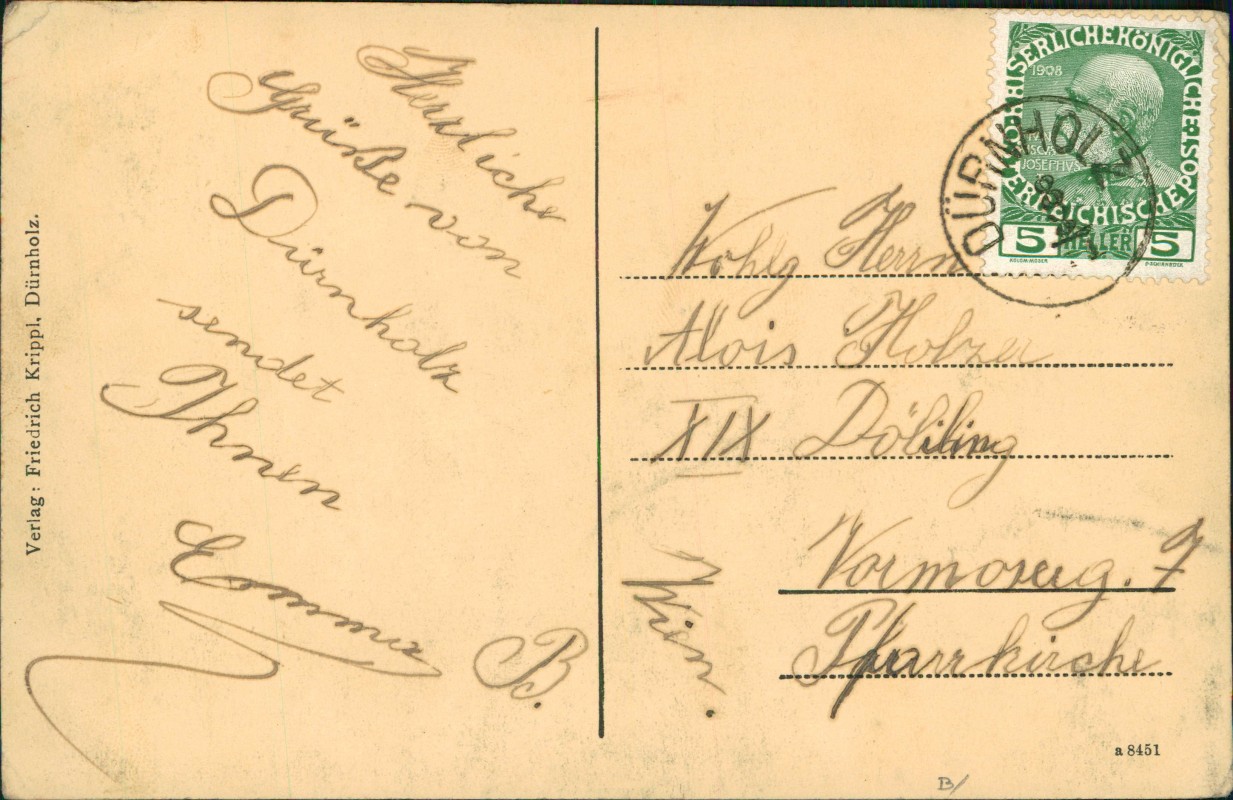 Herzliche
Grüße von
Dürnholz
sendet
Ihnen
Emma
B.
Verlag: Friedrich Krippl, Dürnholz.
KAISERLICHE KÖNIGLICHE ÖSTERREICHISCHE POST
1908
JOSEPHVS
5 HELLER 5
DÜRNHOLZ
Wohlg Herrn
Alois Holzer
XIX Döbling
7
Pfarrkirche
Wien.
a 8451
B/